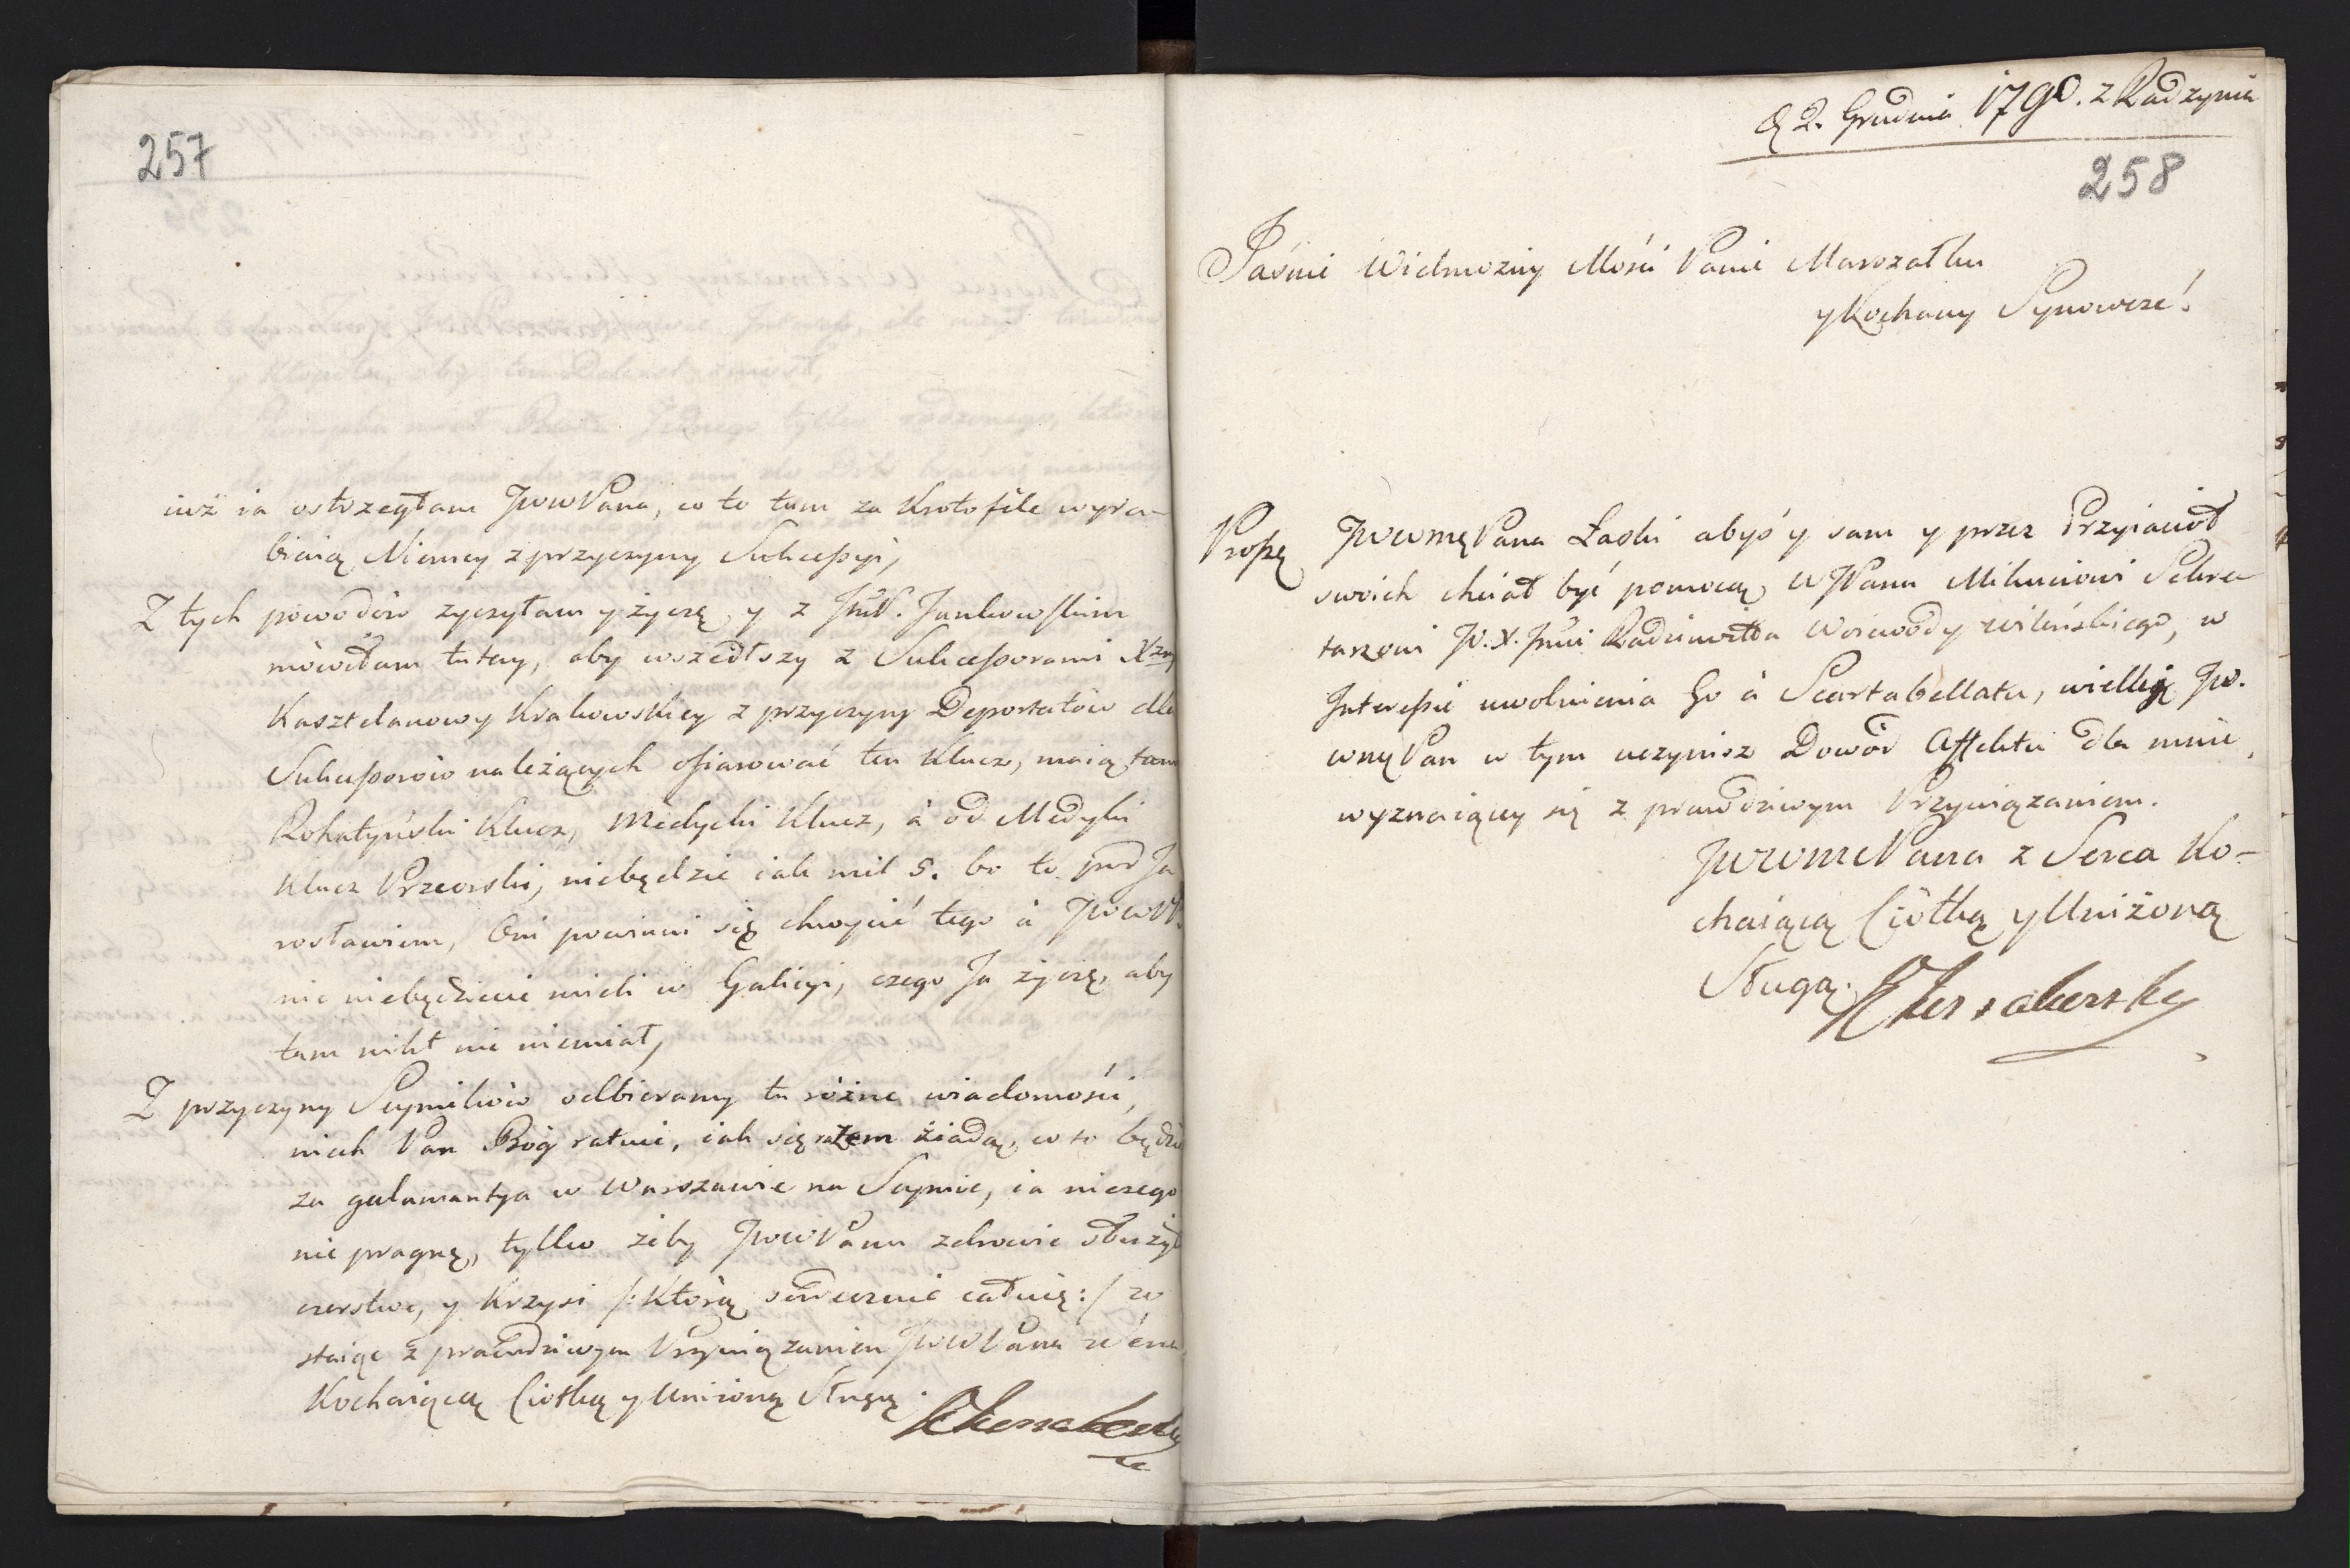 257
iuż ia ostrzegłam JWWPana, co to tam za Krotofile wyra-
biaią Niemcy z przyczyny Sukceßyi,
Z tych powodów zyczyłam y życzę, y z JmP. Jankowskim
mówiłam tutay, aby wszedłszy z Sukceßorami Xzny
Kasztelanowy Krakowskiey z przyczyny Deportatów dla
Sukceßorów należących ofiarować ten Klucz, maią tam
Rohatyński Klucz, Medycki Klucz, à od Medyki
Klucz Przeorski, niebędzie iak mil 5. bo to pod Ja
rosławiem, Oni powinni się chwycić tego à JWWP.
nic niebędziecie mieli w Galicyi, czego Ja życzę, aby
tam nikt nic niemiał,
Z przyczyny Seymików odbieramy tu różne wiadomości,
niech Pan Bóg ratuie, iak się razem ziadą, co to będzie
za galamantya w Warszawie na Seymie, ia niczego
nie pragnę, tylko żeby JWWPanu zdrowie służyło
czerstwe, y Krzysi /: Którą serdecznie całuię :/ zo
staiąc z prawdziwym Przywiązaniem JWWPana
Kochaiącą Ciotką y Uniżoną Sługą.
d 2. Grudnia 1790. z Radzynia
258
Jaśnie Wielmożny Mości Panie Marszałku
y Kochany Synowcze!
Proszę JWWmęPana Łaski abyś y sam y przez Przyiaciół
swoich chciał być pomocą, WJPanu Mikuciowi Sekre
tarzowi JO. X. Jmci Radziwiłła Woiewody wileńskiego, w
Intereßie uwolnienia Go à Scartabellatu, wielki JW.
WmęPan w tym uczynisz Dowód Affektu dla mnie
wyznaiącey się z prawdziwym Przywiązaniem.
JWWmPana z Serca Ko-
chaiącą Ciotką y Uniżoną
Sługą.